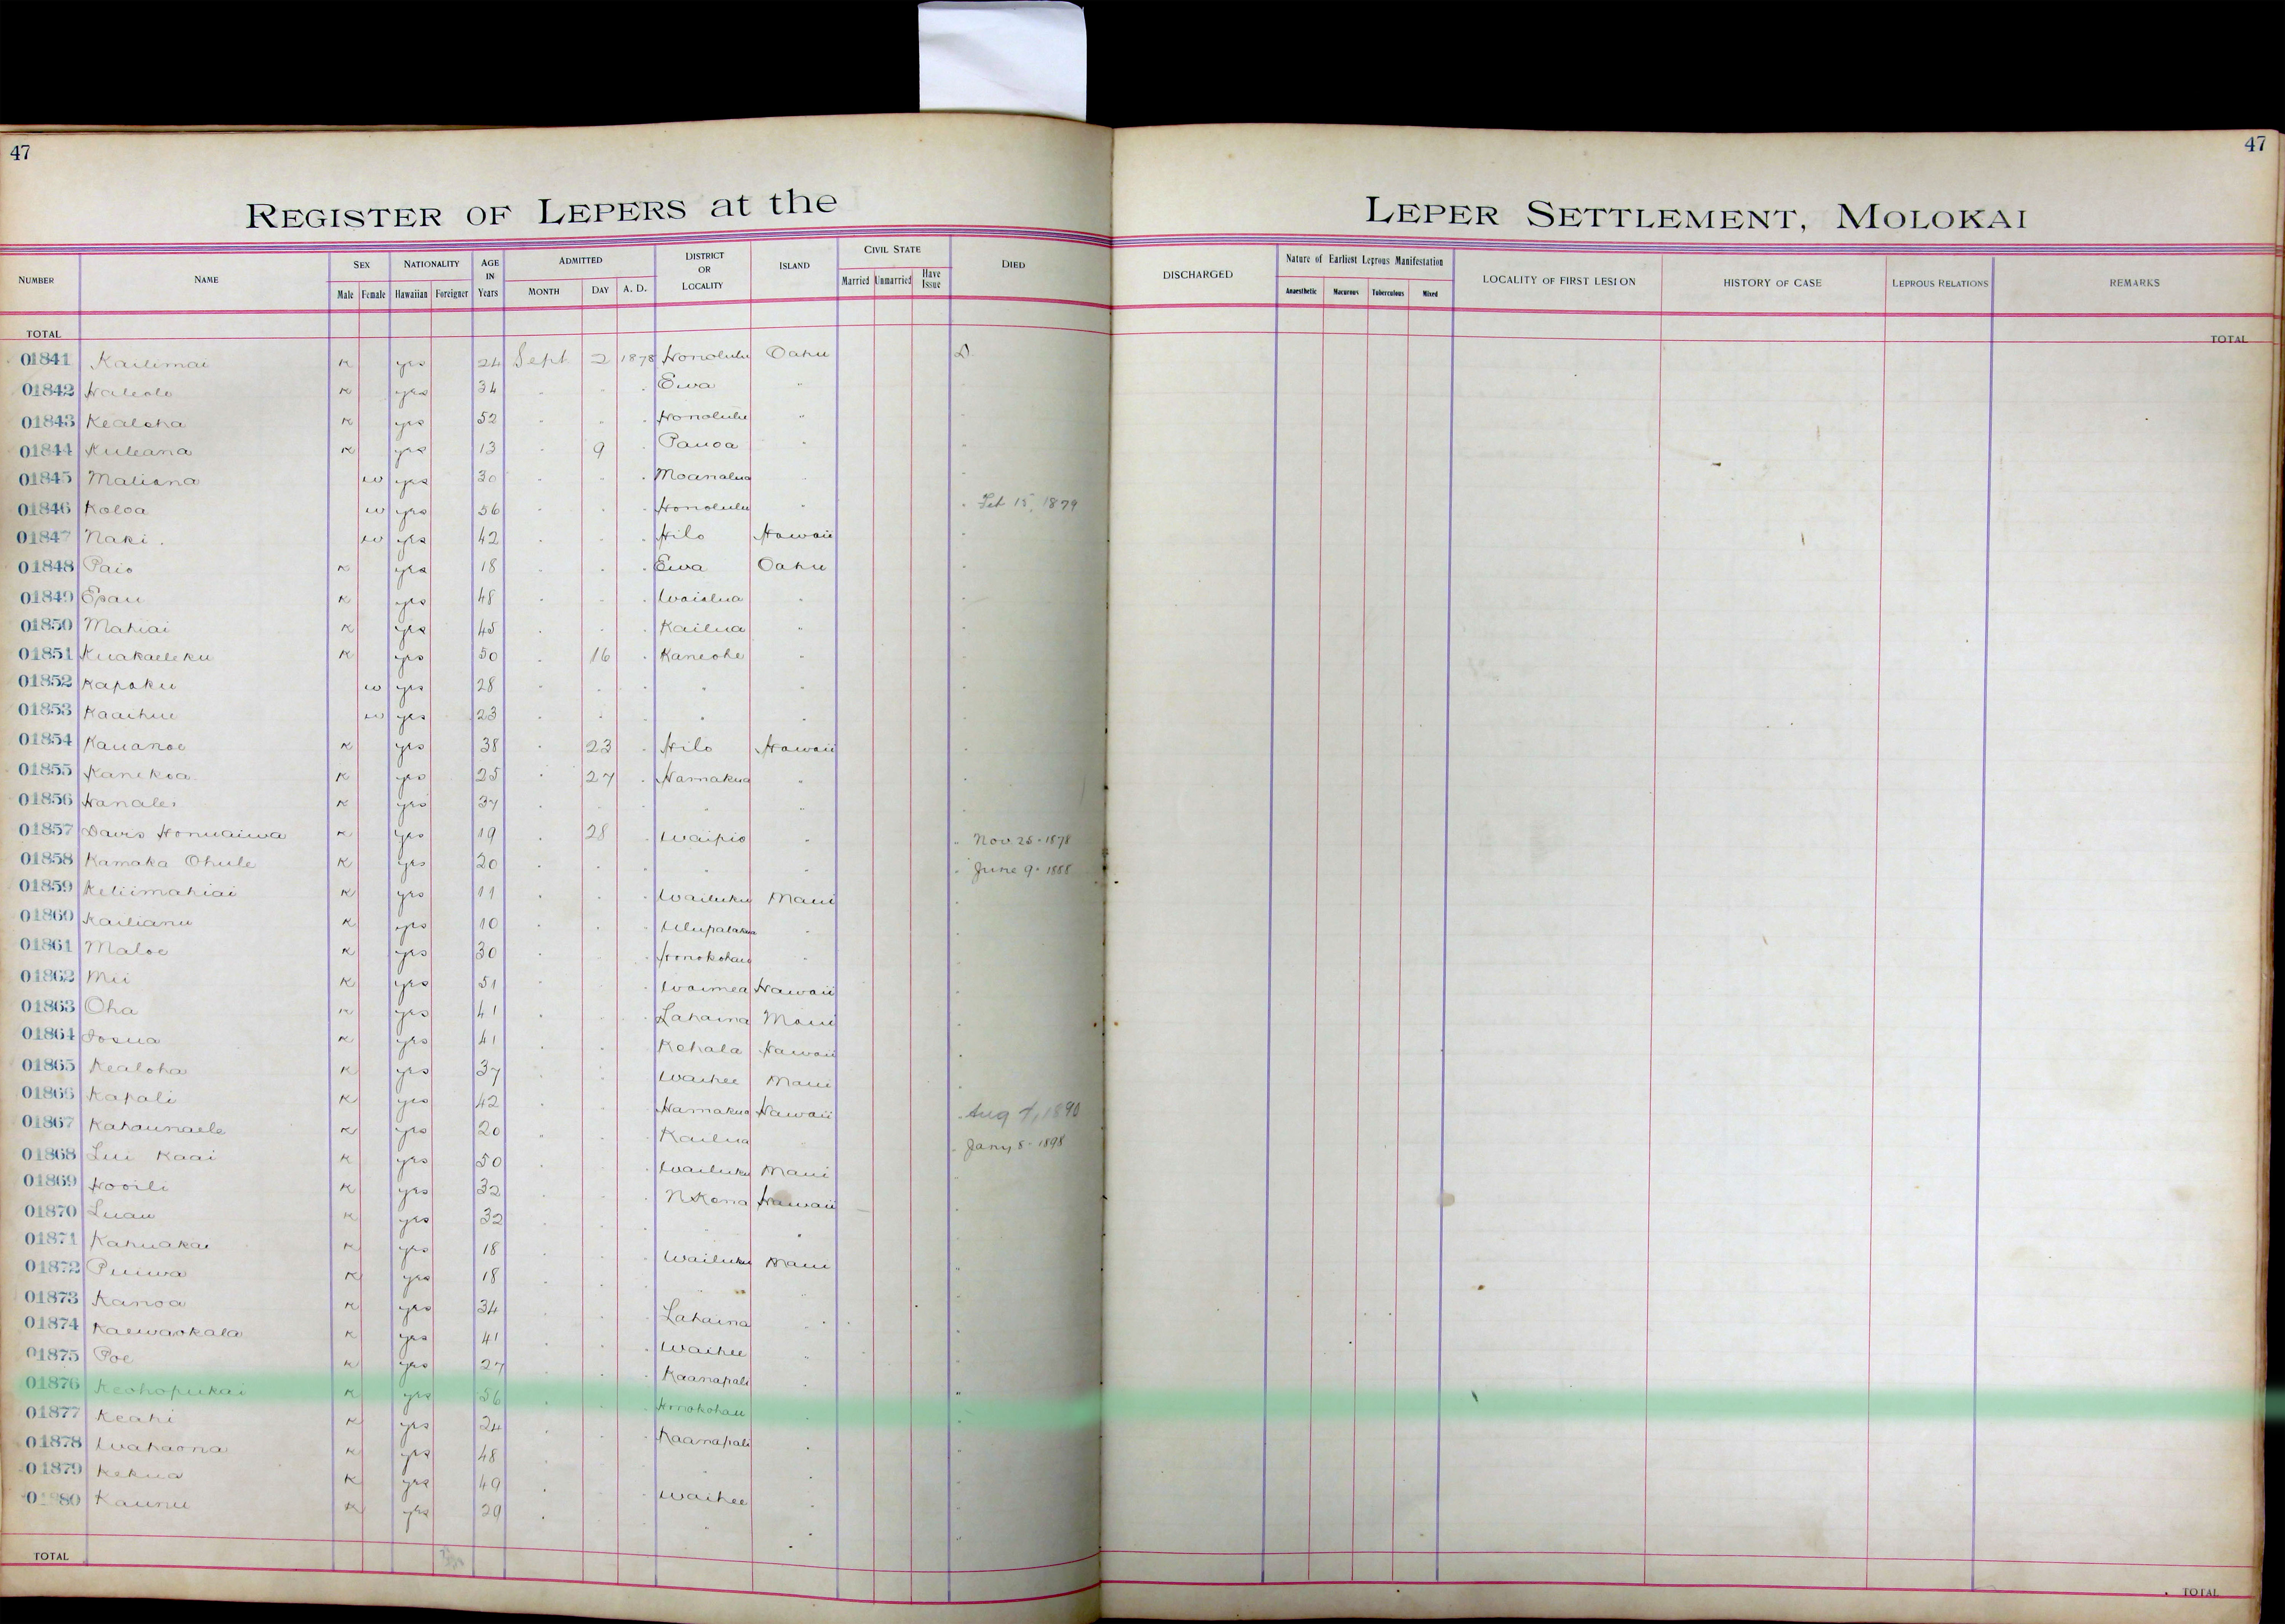 47
47
REGISTER OF LEPERS at the LEPER SETTLEMENT, MOLOKAI
NUMBER NAME SEX NATIONALITY AGE IN Years ADMITTED DISTRICT OR LOCALITY ISLAND CIVIL STATE DIED DISCHARGED Nature of Earliest Leprous Manifestation LOCALITY OF FIRST LESION HISTORY OF CASE LEPROUS RELATIONS REMARKS
Male Female Hawaiian Foreigner MONTH DAY A. D. Married Unmarried Have Issue Anaesthetic Macurous Tuberculous Mixed
TOTAL TOTAL
01841 Kailimai K yes 24 Sept 2 1878 Honolulu Oahu D
01842 Haleolo K yes 34 " " " Ewa "
01843 Kealoha K yes 52 " " " Honolulu "
01844 Kuleana K yes 13 " 9 " Pauoa "
01845 Maliana w yes 30 " " " Moanalua "
01846 Koloa w yes 56 " " " Honolulu " " Feb 15, 1879
01847 Naki w yes 42 " " " Hilo Hawaii "
01848 Paio K yes 18 " " " Ewa Oahu "
01849 Epau K yes 48 " " " Waialua " "
01850 Mahiai K yes 45 " " " Kailua " "
01851 Kuakaeleku K yes 50 " 16 " Kaneohe " "
01852 Kapoku w yes 28 " " " " "
01853 Kaaihue w yes 23 " " " " "
01854 Kauanoe K yes 38 " 23 " Hilo Hawaii "
01855 Kanekoa K yes 25 " 27 " Hamakua " "
01856 Hanalei K yes 37 " " " " " "
01857 Davis Honuaiwa K yes 19 " 28 " Waipio " " Nov 25 - 1878
01858 Kamaka Ohule K yes 20 " " " " " " June 9 - 1888
01859 Keliimahiai K yes 11 " " " Wailuku Maui "
01860 Kailianu K yes 10 " " " Ulupalakua " "
01861 Maloe K yes 30 " " " Honokohau " "
01862 Mii K yes 51 " " " Waimea Hawaii "
01863 Oha K yes 41 " " " Lahaina Maui "
01864 Iosua K yes 41 " " " Kohala Hawaii "
01865 Kealoha K yes 37 " " " Waihee Maui "
01866 Kapali K yes 42 " " " Hamakua Hawaii " Aug 7, 1890
01867 Kahaunaele K yes 20 " " " Kailua " " Jany 8 - 1898
01868 Lui Kaai K yes 50 " " " Wailuku Maui "
01869 Hooili K yes 32 " " " N Kona Hawaii "
01870 Luau K yes 32 " " " " "
01871 Kahuakai K yes 18 " " " Wailuku Maui "
01872 Puiwa K yes 18 " " " " "
01873 Kanoa K yes 34 " " " Lahaina " "
01874 Kaewaokala K yes 41 " " " Waihee " "
01875 Poe K yes 27 " " " Kaanapali " "
01876 Keohopukai K yes 56 " " " Honokohau " "
01877 Keahi K yes 24 " " " Kaanapali " "
01878 Wahaona K yes 48 " " " " "
01879 Kekua K yes 49 " " " Waihee " "
01880 Kaunu K yes 29 " " " " "
TOTAL TOTAL